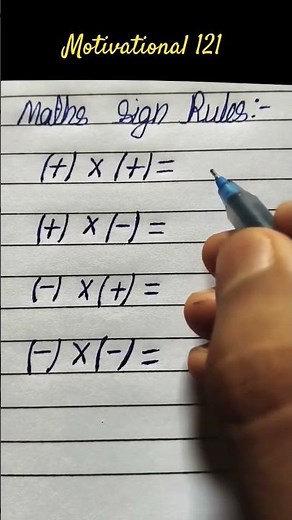 Motivational 121
Maths Sign Rules:-
(+) × (+) =
(+) × (-) =
(-) × (+) =
(-) × (-) =